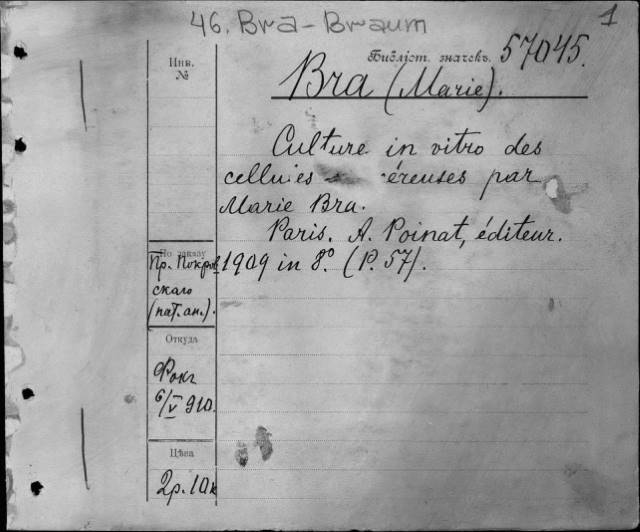 46. Bra - Braum
1
Инв.
№
Библіот. значекъ. 57045.
Bra (Marie).
Culture in vitro des
cellules céreuses par
Marie Bra.
Paris. A. Poinat, éditeur.
1909 in 8°. (P. 57).
По заказу
Пр. Покров
скаго
(пат. ан.).
Откуда
Фокг
6/V 910.
Цѣна
2р. 10к